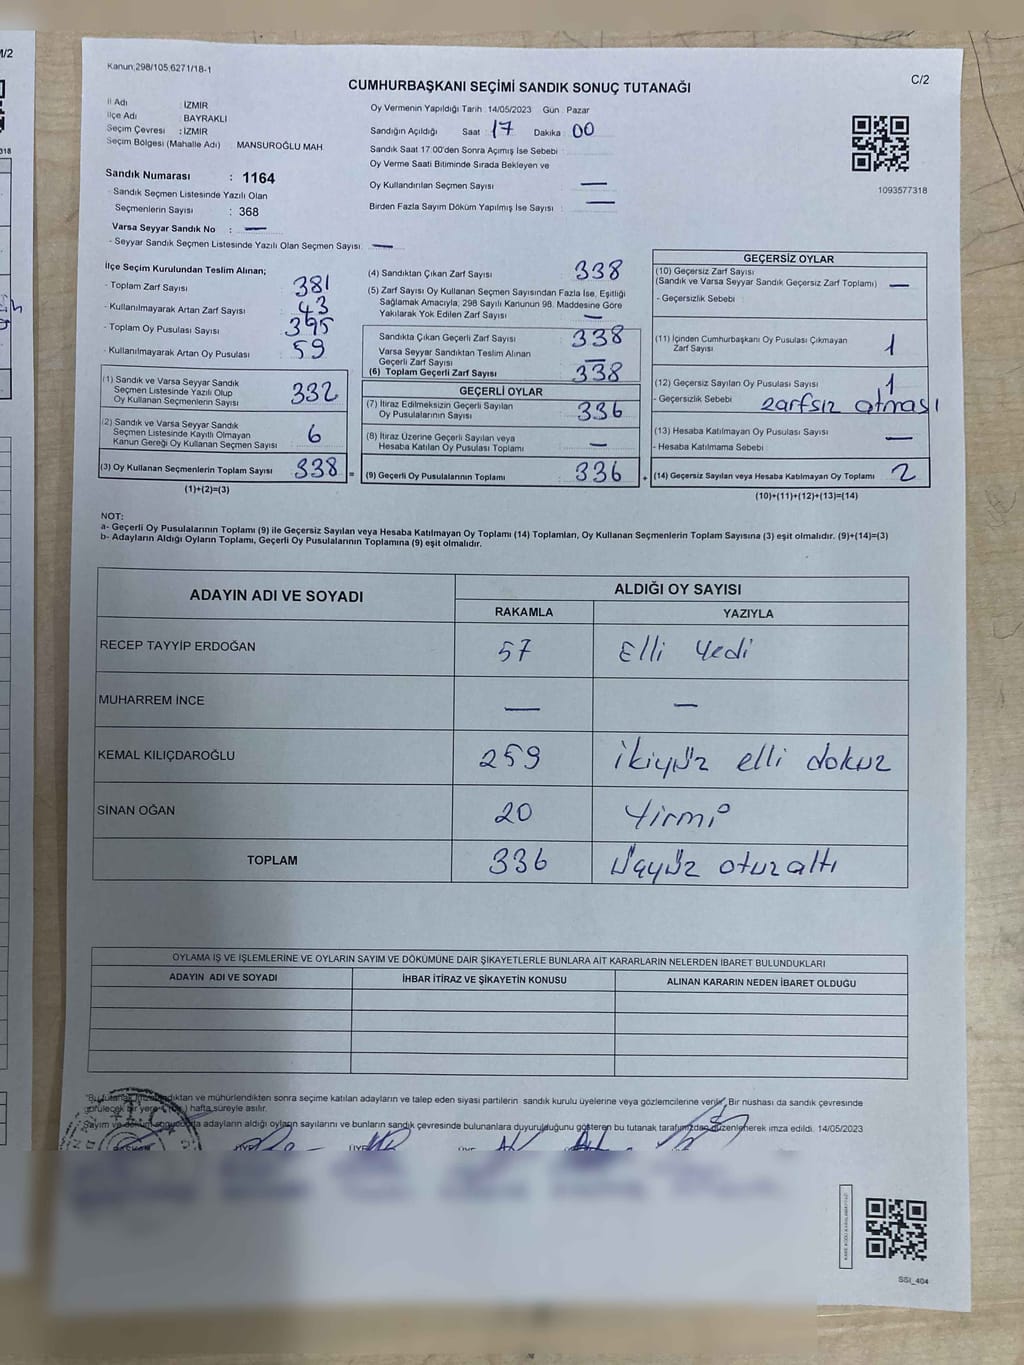 M/2
318
Kanun;298/105,6271/18-1
C/2
CUMHURBAŞKANI SEÇİMİ SANDIK SONUÇ TUTANAĞI
İl Adı : İZMİR
İlçe Adı : BAYRAKLI
Seçim Çevresi : İZMİR
Seçim Bölgesi (Mahalle Adı) : MANSUROĞLU MAH.
Sandık Numarası : 1164
- Sandık Seçmen Listesinde Yazılı Olan
Seçmenlerin Sayısı : 368
Varsa Seyyar Sandık No : —
- Seyyar Sandık Seçmen Listesinde Yazılı Olan Seçmen Sayısı : —
Oy Vermenin Yapıldığı Tarih : 14/05/2023 Gün : Pazar
Sandığın Açıldığı Saat 17 Dakika 00
Sandık Saat 17.00'den Sonra Açımış İse Sebebi :
Oy Verme Saati Bitiminde Sırada Bekleyen ve
Oy Kullandırılan Seçmen Sayısı : —
Birden Fazla Sayım Döküm Yapılmış İse Sayısı : —
1093577318
İlçe Seçim Kurulundan Teslim Alınan;
- Toplam Zarf Sayısı : 381
- Kullanılmayarak Artan Zarf Sayısı : 43
- Toplam Oy Pusulası Sayısı : 395
- Kullanılmayarak Artan Oy Pusulası : 59
(1) Sandık ve Varsa Seyyar Sandık
Seçmen Listesinde Yazılı Olup
Oy Kullanan Seçmenlerin Sayısı 332
(2) Sandık ve Varsa Seyyar Sandık
Seçmen Listesinde Kayıtlı Olmayan
Kanun Gereği Oy Kullanan Seçmen Sayısı 6
(3) Oy Kullanan Seçmenlerin Toplam Sayısı 338 =
(1)+(2)=(3)
(4) Sandıktan Çıkan Zarf Sayısı 338
(5) Zarf Sayısı Oy Kullanan Seçmen Sayısından Fazla İse, Eşitliği
Sağlamak Amacıyla; 298 Sayılı Kanunun 98. Maddesine Göre
Yakılarak Yok Edilen Zarf Sayısı : —
Sandıkta Çıkan Geçerli Zarf Sayısı : 338
Varsa Seyyar Sandıktan Teslim Alınan
Geçerli Zarf Sayısı : —
(6) Toplam Geçerli Zarf Sayısı : 338
GEÇERLİ OYLAR
(7) İtiraz Edilmeksizin Geçerli Sayılan
Oy Pusulalarının Sayısı 336
(8) İtiraz Üzerine Geçerli Sayılan veya
Hesaba Katılan Oy Pusulası Toplamı —
(9) Geçerli Oy Pusulalarının Toplamı 336 +
GEÇERSİZ OYLAR
(10) Geçersiz Zarf Sayısı
(Sandık ve Varsa Seyyar Sandık Geçersiz Zarf Toplamı) —
- Geçersizlik Sebebi
(11) İçinden Cumhurbaşkanı Oy Pusulası Çıkmayan
Zarf Sayısı 1
(12) Geçersiz Sayılan Oy Pusulası Sayısı 1
- Geçersizlik Sebebi zarfsız atması
(13) Hesaba Katılmayan Oy Pusulası Sayısı —
- Hesaba Katılmama Sebebi
(14) Geçersiz Sayılan veya Hesaba Katılmayan Oy Toplamı 2
(10)+(11)+(12)+(13)=(14)
NOT:
a- Geçerli Oy Pusulalarının Toplamı (9) ile Geçersiz Sayılan veya Hesaba Katılmayan Oy Toplamı (14) Toplamları, Oy Kullanan Seçmenlerin Toplam Sayısına (3) eşit olmalıdır. (9)+(14)=(3)
b- Adayların Aldığı Oyların Toplamı, Geçerli Oy Pusulalarının Toplamına (9) eşit olmalıdır.
ADAYIN ADI VE SOYADI ALDIĞI OY SAYISI
RAKAMLA YAZIYLA
RECEP TAYYİP ERDOĞAN 57 Elli Yedi
MUHARREM İNCE — —
KEMAL KILIÇDAROĞLU 259 ikiyüz elli dokuz
SİNAN OĞAN 20 Yirmi
TOPLAM 336 üçyüz otuz altı
OYLAMA İŞ VE İŞLEMLERİNE VE OYLARIN SAYIM VE DÖKÜMÜNE DAİR ŞİKAYETLERLE BUNLARA AİT KARARLARIN NELERDEN İBARET BULUNDUKLARI
ADAYIN ADI VE SOYADI İHBAR İTİRAZ VE ŞİKAYETİN KONUSU ALINAN KARARIN NEDEN İBARET OLDUĞU
"Bu tutanak imzalandıktan ve mühürlendikten sonra seçime katılan adayların ve talep eden siyasi partilerin sandık kurulu üyelerine veya gözlemcilerine verilir. Bir nüshası da sandık çevresinde
görülecek bir yere 1 (Bir) hafta süreyle asılır.
Sayım ve döküm sonucunda adayların aldığı oyların sayılarını ve bunların sandık çevresinde bulunanlara duyurulduğunu gösteren bu tutanak tarafımızdan düzenlenerek imza edildi. 14/05/2023
BAŞKAN ÜYE ÜYE ÜYE
SSI_404